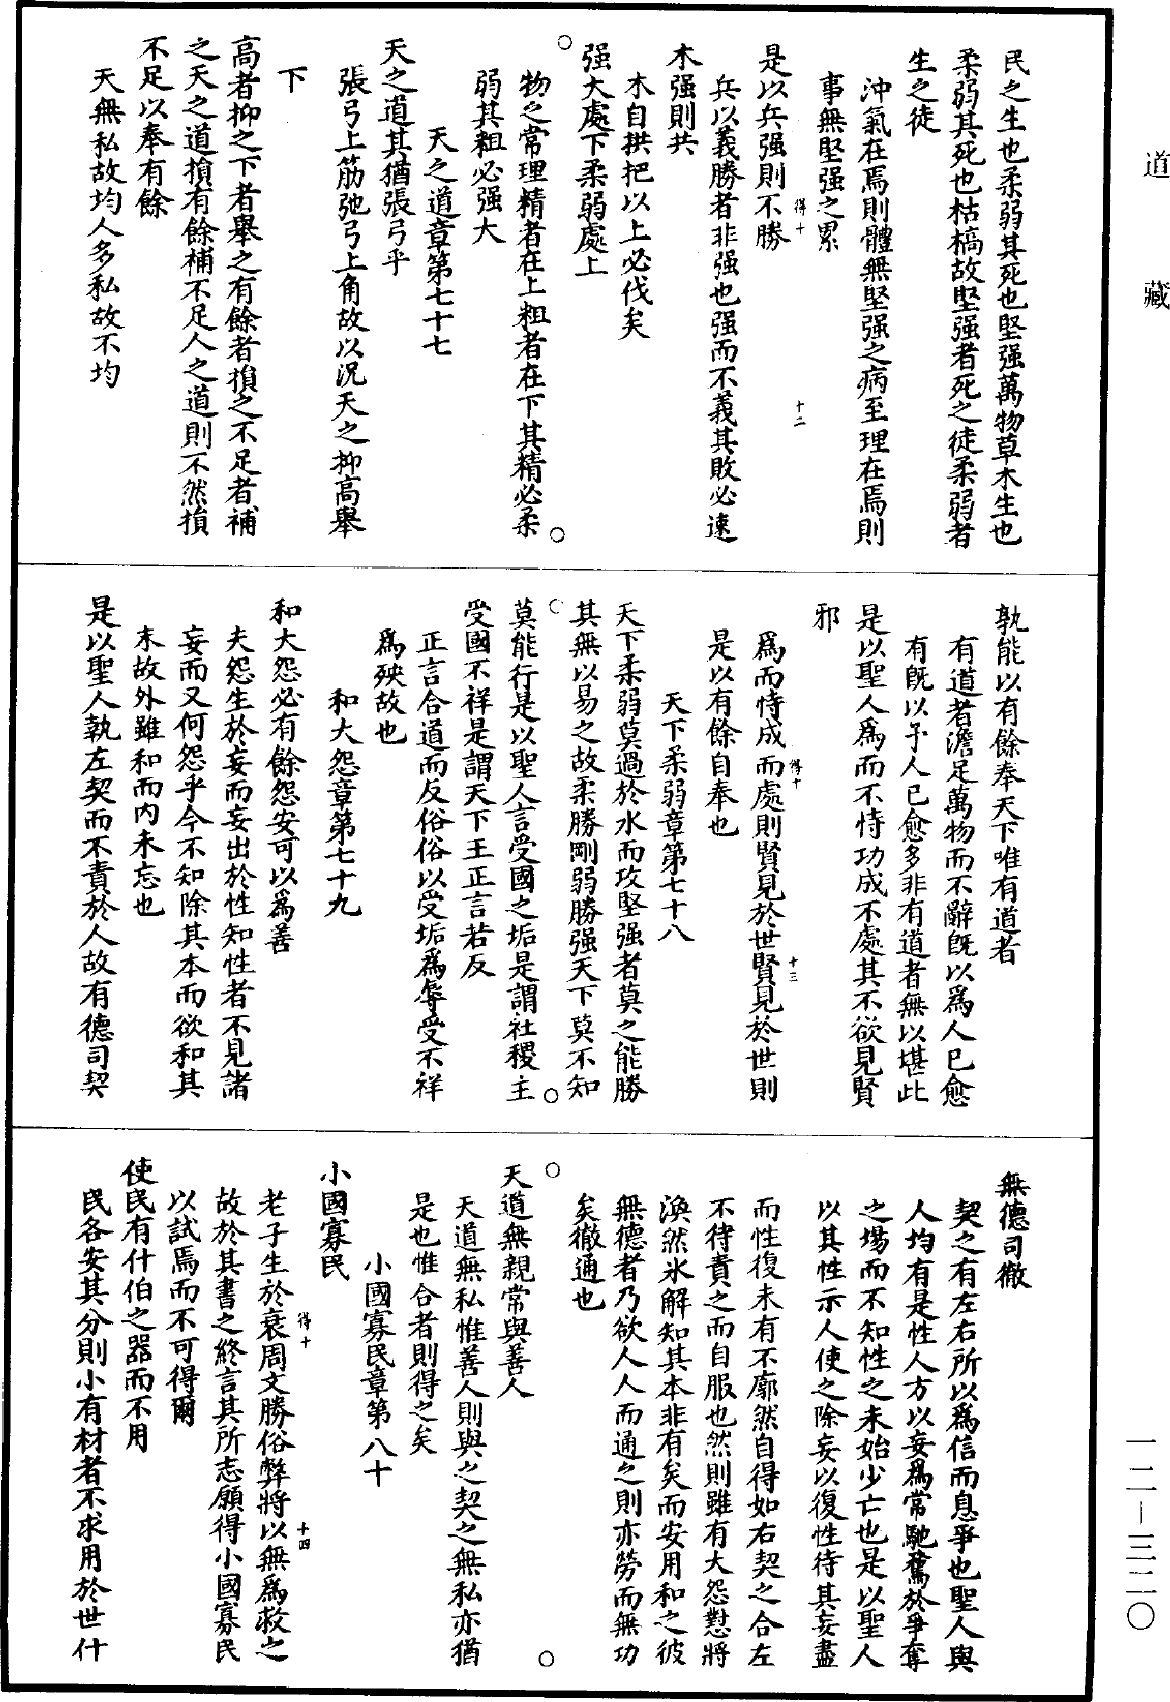 道藏
民之生也柔弱其死也堅强萬物草木生也
柔弱其死也枯槁故堅强者死之徒柔弱者
生之徒
沖氣在焉則體無堅强之病至理在焉則
事無堅强之累
得十 十二
是以兵强則不勝
兵以義勝者非强也强而不義其敗必速
木强則共
木自拱把以上必伐矣
强大處下柔弱處上
物之常理精者在上粗者在下其精必柔
弱其粗必强大
天之道章第七十七
天之道其猶張弓乎
張弓上筋弛弓上角故以況天之抑高舉
下
高者抑之下者舉之有餘者損之不足者補
之天之道損有餘補不足人之道則不然損
不足以奉有餘
天無私故均人多私故不均
孰能以有餘奉天下唯有道者
有道者澹足萬物而不辭旣以爲人已愈
有旣以予人已愈多非有道者無以堪此
是以聖人爲而不恃功成不處其不欲見賢
邪
得十 十三
爲而恃成而處則賢見於世賢見於世則
是以有餘自奉也
天下柔弱章第七十八
天下柔弱莫過於水而攻堅强者莫之能勝
其無以易之故柔勝剛弱勝强天下莫不知
莫能行是以聖人言受國之垢是謂社稷主
受國不祥是謂天下王正言若反
正言合道而反俗俗以受垢爲辱受不祥
爲殃故也
和大怨章第七十九
和大怨必有餘怨安可以爲善
夫怨生於妄而妄出於性知性者不見諸
妄而又何怨乎今不知除其本而欲和其
末故外雖和而內未忘也
是以聖人執左契而不責於人故有德司契
無德司徹
契之有左右所以爲信而息爭也聖人與
人均有是性人方以妄爲常馳騖於爭奪
之場而不知性之未始少亡也是以聖人
以其性示人使之除妄以復性待其妄盡
而性復未有不廓然自得如右契之合左
不待責之而自服也然則雖有大怨懟將
渙然冰解知其本非有矣而安用和之彼
無德者乃欲人人而通之則亦勞而無功
矣徹通也
天道無親常與善人
天道無私惟善人則與之契之無私亦猶
是也惟合者則得之矣
小國寡民章第八十
小國寡民
得十 十四
老子生於衰周文勝俗弊將以無爲救之
故於其書之終言其所志願得小國寡民
以試焉而不可得爾
使民有什伯之器而不用
民各安其分則小有材者不求用於世什
一二—三二〇